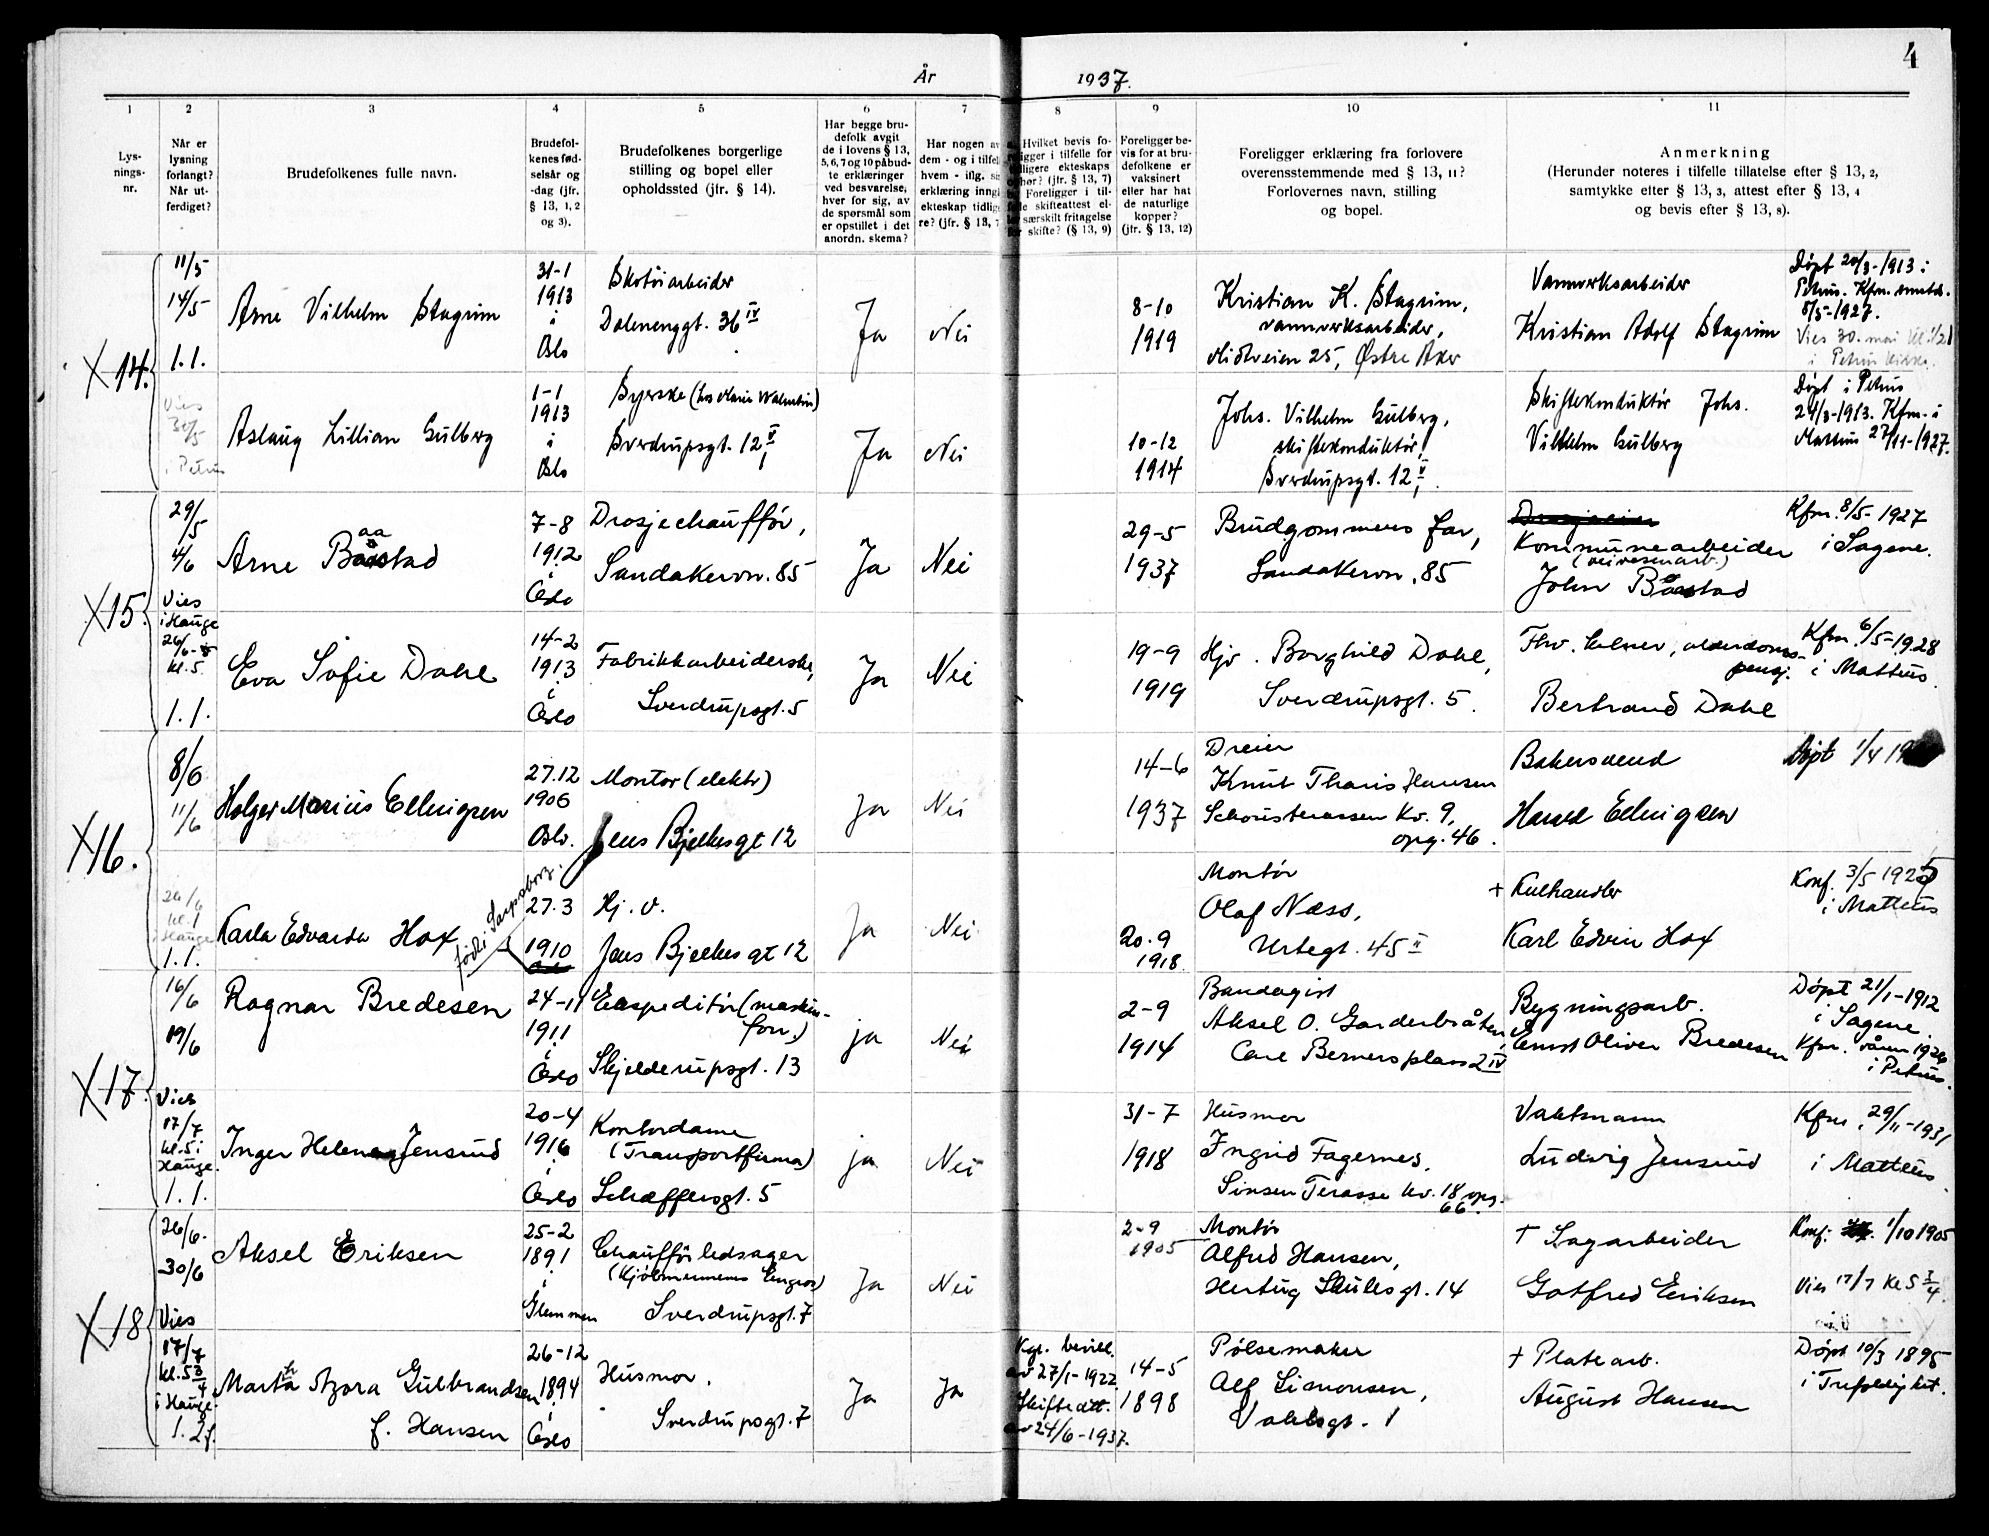 4
År 1937.
1 2 3 4 5 6 7 8 9 10 11
Lys-
nings-
nr.
Når er
lysning
forlangt?
Når ut-
ferdiget?
Brudefolkenes fulle navn.
Brudefol-
kenes fød-
selsår og
-dag (jfr.
§ 13, 1, 2
og 3).
Brudefolkenes borgerlige
stilling og bopel eller
opholdssted (jfr. § 14).
Har begge bru-
defolk avgit
de i lovens § 13,
5, 6, 7 og 10 påbud-
te erklæringer
ved besvarelse,
hver for sig, av
de spørsmål som
er opstillet i det
anordn. skema?
Har nogen av
dem - og i tilfel
hvem - iflg. si
erklæring inngå
ekteskap tidlige
re? (jfr. § 13, 7
Hvilket bevis fo-
religger i tilfelle for
tidligere ekteskaps
ophør? (jfr. § 13, 7)
Foreligger i til-
felle skifteattest el-
ler særskilt fritagelse
for skifte? (§ 13, 9)
Foreligger be-
vis for at bru-
defolkene er
vaksinert
eller har hat
de naturlige
kopper?
(jfr. § 13, 12)
Foreligger erklæring fra forlovere
overensstemmende med § 13, 11?
Forlovernes navn, stilling
og bopel.
Anmerkning
(Herunder noteres i tilfelle tillatelse efter § 13, 2,
samtykke efter § 13, 3, attest efter § 13, 4
og bevis efter § 13, 8).
X 14.
11/5
14/5
1.1.
Arne Vilhelm Stagrim
31-1
1913
i
Oslo
Skotøiarbeider
Dalenenggt. 36 IV
Ja
Nei
8-10
1919
Kristian K. Stagrim,
vannverksarbeider,
Midtveien 25, Østre Aker
Vannverksarbeider
Kristian Adolf Stagrim
Døpt 20/3-1913 i
Petrus. Kfm.
8/5-1927.
Vies 30. mai kl. 1/2 1
i Petrus kirke.
Vies
30/5
i Petrus
Aslaug Lillian Gulberg
1-1
1913
i
Oslo
Syerske (hos Marie Walentin)
Sverdrupsgt. 12, V
Ja
Nei
10-12
1914
Johs. Vilhelm Gulberg,
skiftekonduktør,
Sverdrupsgt. 12, V.
Skiftekonduktør Johs.
Vilhelm Gulberg
Døpt i Petrus
24/3-1913. Kfm. i
Matteus 27/11-1927.
X 15.
29/5
4/6
Vies
i Hauge
26/6
kl. 5.
1.1.
Arne Baastad
7-8
1912
i
Oslo
Drosjechauffør,
Sandakervn. 85
Ja
Nei
29-5
1937
Brudgommens far,
Sandakervn. 85
Kommunearbeider
(veivesenarb.)
John Båstad
Kfm. 8/5-1927
i Sagene.
Eva Sofie Dahl
14-2
1913
i
Oslo
Fabrikkarbeiderske,
Sverdrupsgt. 5
Ja
Nei
19-9
1919
Hjv. Borghild Dahl,
Sverdrupsgt. 5.
Fhv. kelner, alderdoms-
pensj.
Bertrand Dahl
Kfm. 6/5-1928
i Matteus.
X 16.
8/6
11/6
Holger Marius Ellingren
27.12
1906
Oslo.
Montør (elektr)
Jens Bjelkesgt 12
Ja
Nei
14-6
1937
Dreier
Knut Thams Hansen
Schousterrassen Kv. 9,
opg. 46.
Bakersvend
Harald Ellingren
Døpt 1/4 19
26/6
kl. 1
i Hauge
1.1.
Karla Edvarda Hox
født i Sarpsborg.
27.3
1910
Hj. v.
Jens Bjelkesgt 12
Ja
Nei
20.9
1918.
Montør
Olaf Næss,
Urtegt. 45 II
+ Kulhandler
Karl Edvin Hox
Konf. 3/5 1925
i Matteus
X 17.
16/6
19/6
Ragnar Bredesen
24-11
1911
i
Oslo
Ekspeditør (maskin-
forr.)
Skjelderupsgt. 13
ja
Nei
2-9
1914
Bandagist
Aksel O. Garderbråten,
Carl Berners plass 2 IV
Bygningsarb.
Ernst Oliver Bredesen
Døpt 21/1-1912
i Sagene.
Kfm. våren 1926
i Petrus.
Vies
17/7
kl. 5 i
Hauge.
1.1.
Inger Helene Jensrud
20-4
1916
i
Oslo
Kontordame
(Transportfirma)
Schæffersgt. 5
ja
Nei
31-7
1918
Husmor
Ingrid Fagernes,
Sinsen Terasse kv. 18 opg.
66.
Vaktmann
Ludvig Jensrud
Kfm. 29/11-1931
i Matteus.
X 18
26/6.
30/6
Vies
17/7
kl. 5 3/4
i Hauge.
1. 2f.
Aksel Eriksen
25-2
1891
i
Glemmen
Chaufførledsager
(Kjøbmennenes Engros)
Sverdrupsgt. 7
Ja
Nei
2-9
1905
Montør
Alfred Hansen,
Hertug Skulesgt. 14
+ Sagarbeider
Gotfred Eriksen
Konf. 1/10 1905
Vies 17/7 kl 5 3/4.
Martha Azora Gulbrandsen
f. Hansen
26-12
1894
i
Oslo
Husmor.
Sverdrupsgt. 7
Ja
Ja
Kgl. bevill.
av 27/1-1922.
Skifteatt.
av 24/6-1937.
14-5
1898
Pølsemaker
Alf Simonsen,
Vahlsgt. 1
+ Platearb.
August Hansen
Døpt 10/3 1895
i Trefoldighet.